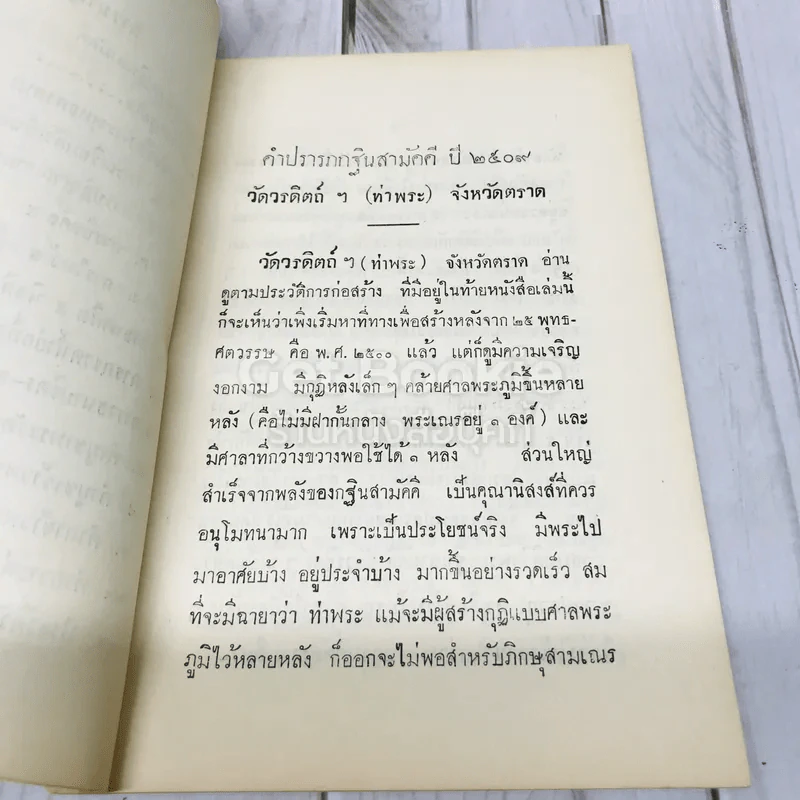 คำปรารภกฐินสามัคคี ปี ๒๕๐๙
วัดวรดิตถ์ ฯ (ท่าพระ) จังหวัดตราด
วัดวรดิตถ์ ฯ (ท่าพระ) จังหวัดตราด อ่าน
ดูตามประวัติการก่อสร้าง ที่มีอยู่ในท้ายหนังสือเล่มนี้
ก็จะเห็นว่าเพิ่งเริ่มหาที่ทางเพื่อสร้างหลังจาก ๒๕ พุทธ-
ศตวรรษ คือ พ.ศ. ๒๕๐๐ แล้ว แต่ก็ดูมีความเจริญ
งอกงาม มีกุฏิหลังเล็ก ๆ คล้ายศาลพระภูมิขึ้นหลาย
หลัง (คือไม่มีฝากั้นกลาง พระเณรอยู่ ๑ องค์) และ
มีศาลาที่กว้างขวางพอใช้ได้ ๑ หลัง ส่วนใหญ่
สำเร็จจากพลังของกฐินสามัคคี เป็นคุณานิสงส์ที่ควร
อนุโมทนามาก เพราะเป็นประโยชน์จริง มีพระไป
มาอาศัยบ้าง อยู่ประจำบ้าง มากขึ้นอย่างรวดเร็ว สม
ที่จะมีฉายาว่า ท่าพระ แม้จะมีผู้สร้างกุฏิแบบศาลพระ
ภูมิไว้หลายหลัง ก็ออกจะไม่พอสำหรับภิกษุสามเณร